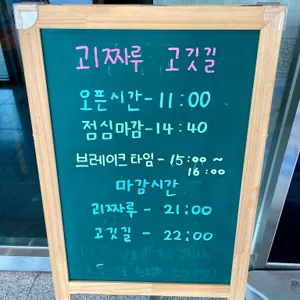 괴짜루 고깃길
오픈시간-11:00
점심마감-14:40
브레이크타임-15:00~
16:00
마감시간
괴짜루 - 21:00
고깃길 - 22:00